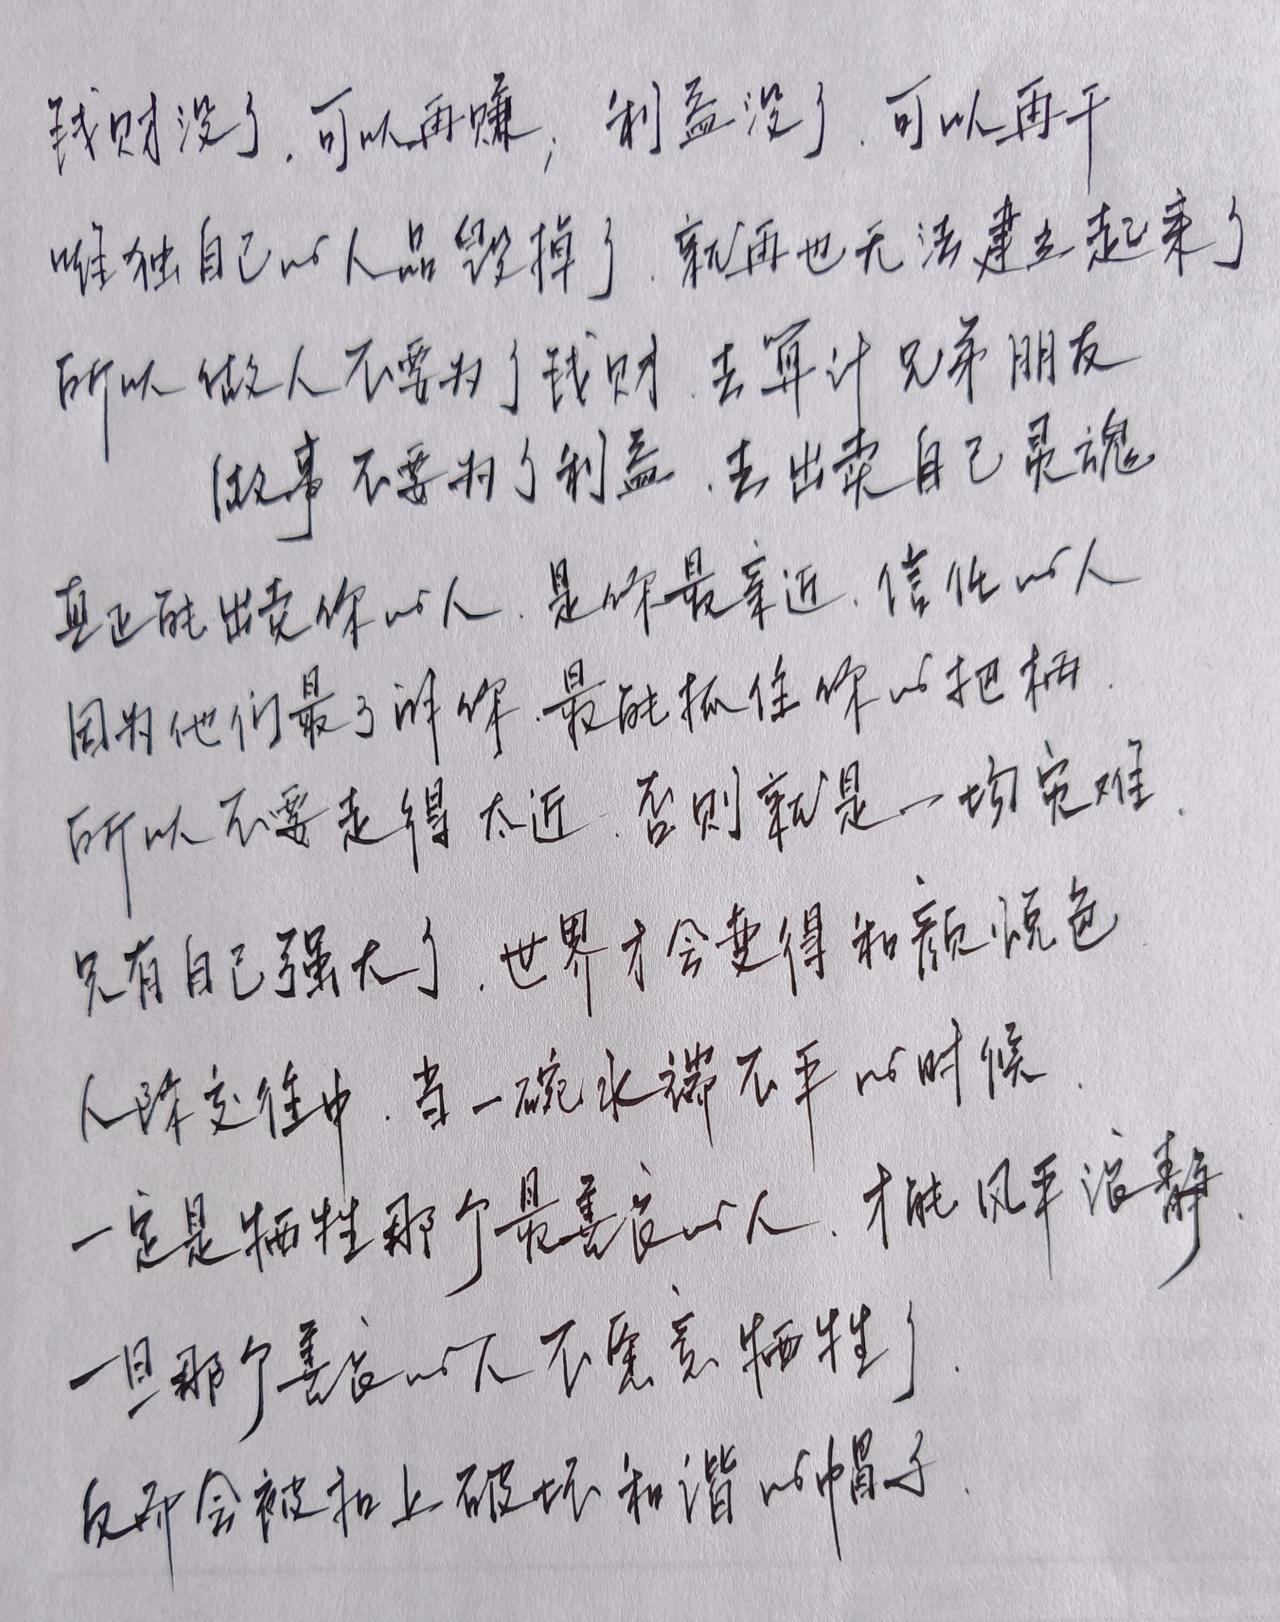 钱财没了.可以再赚；利益没了.可以再干
唯独自己的人品毁掉了.就再也无法建立起来了
所以做人不要为了钱财.去算计兄弟朋友
做事不要为了利益.去出卖自己灵魂
真正能出卖你的人.是你最亲近.信任的人
因为他们最了解你.最能抓住你的把柄.
所以不要走得太近.否则就是一场灾难.
只有自己强大了.世界才会变得和颜悦色
人际交往中.当一碗水端不平的时候.
一定是牺牲那个最善良的人.才能风平浪静.
一旦那个善良的人不愿意牺牲了.
反而会被扣上破坏和谐的帽子.